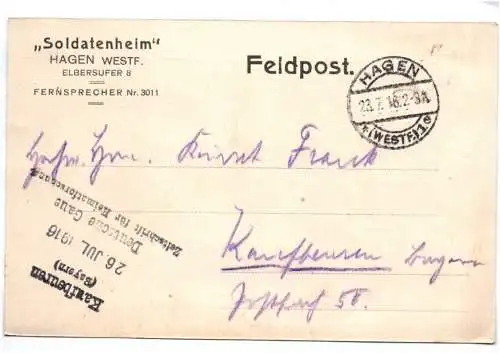 „Soldatenheim“
HAGEN WESTF.
ELBERSUFER 8
FERNSPRECHER Nr. 3011
Feldpost.
HAGEN
23.7.16.2-3N
*(WESTF.)1
Kurat Frank
Kaufbeuren Bayern
Postfach 58.
Kaufbeuren
(Bayern)
26. JUL. 1916
Deutsche Gaue
Zeitschrift für Heimatforschung